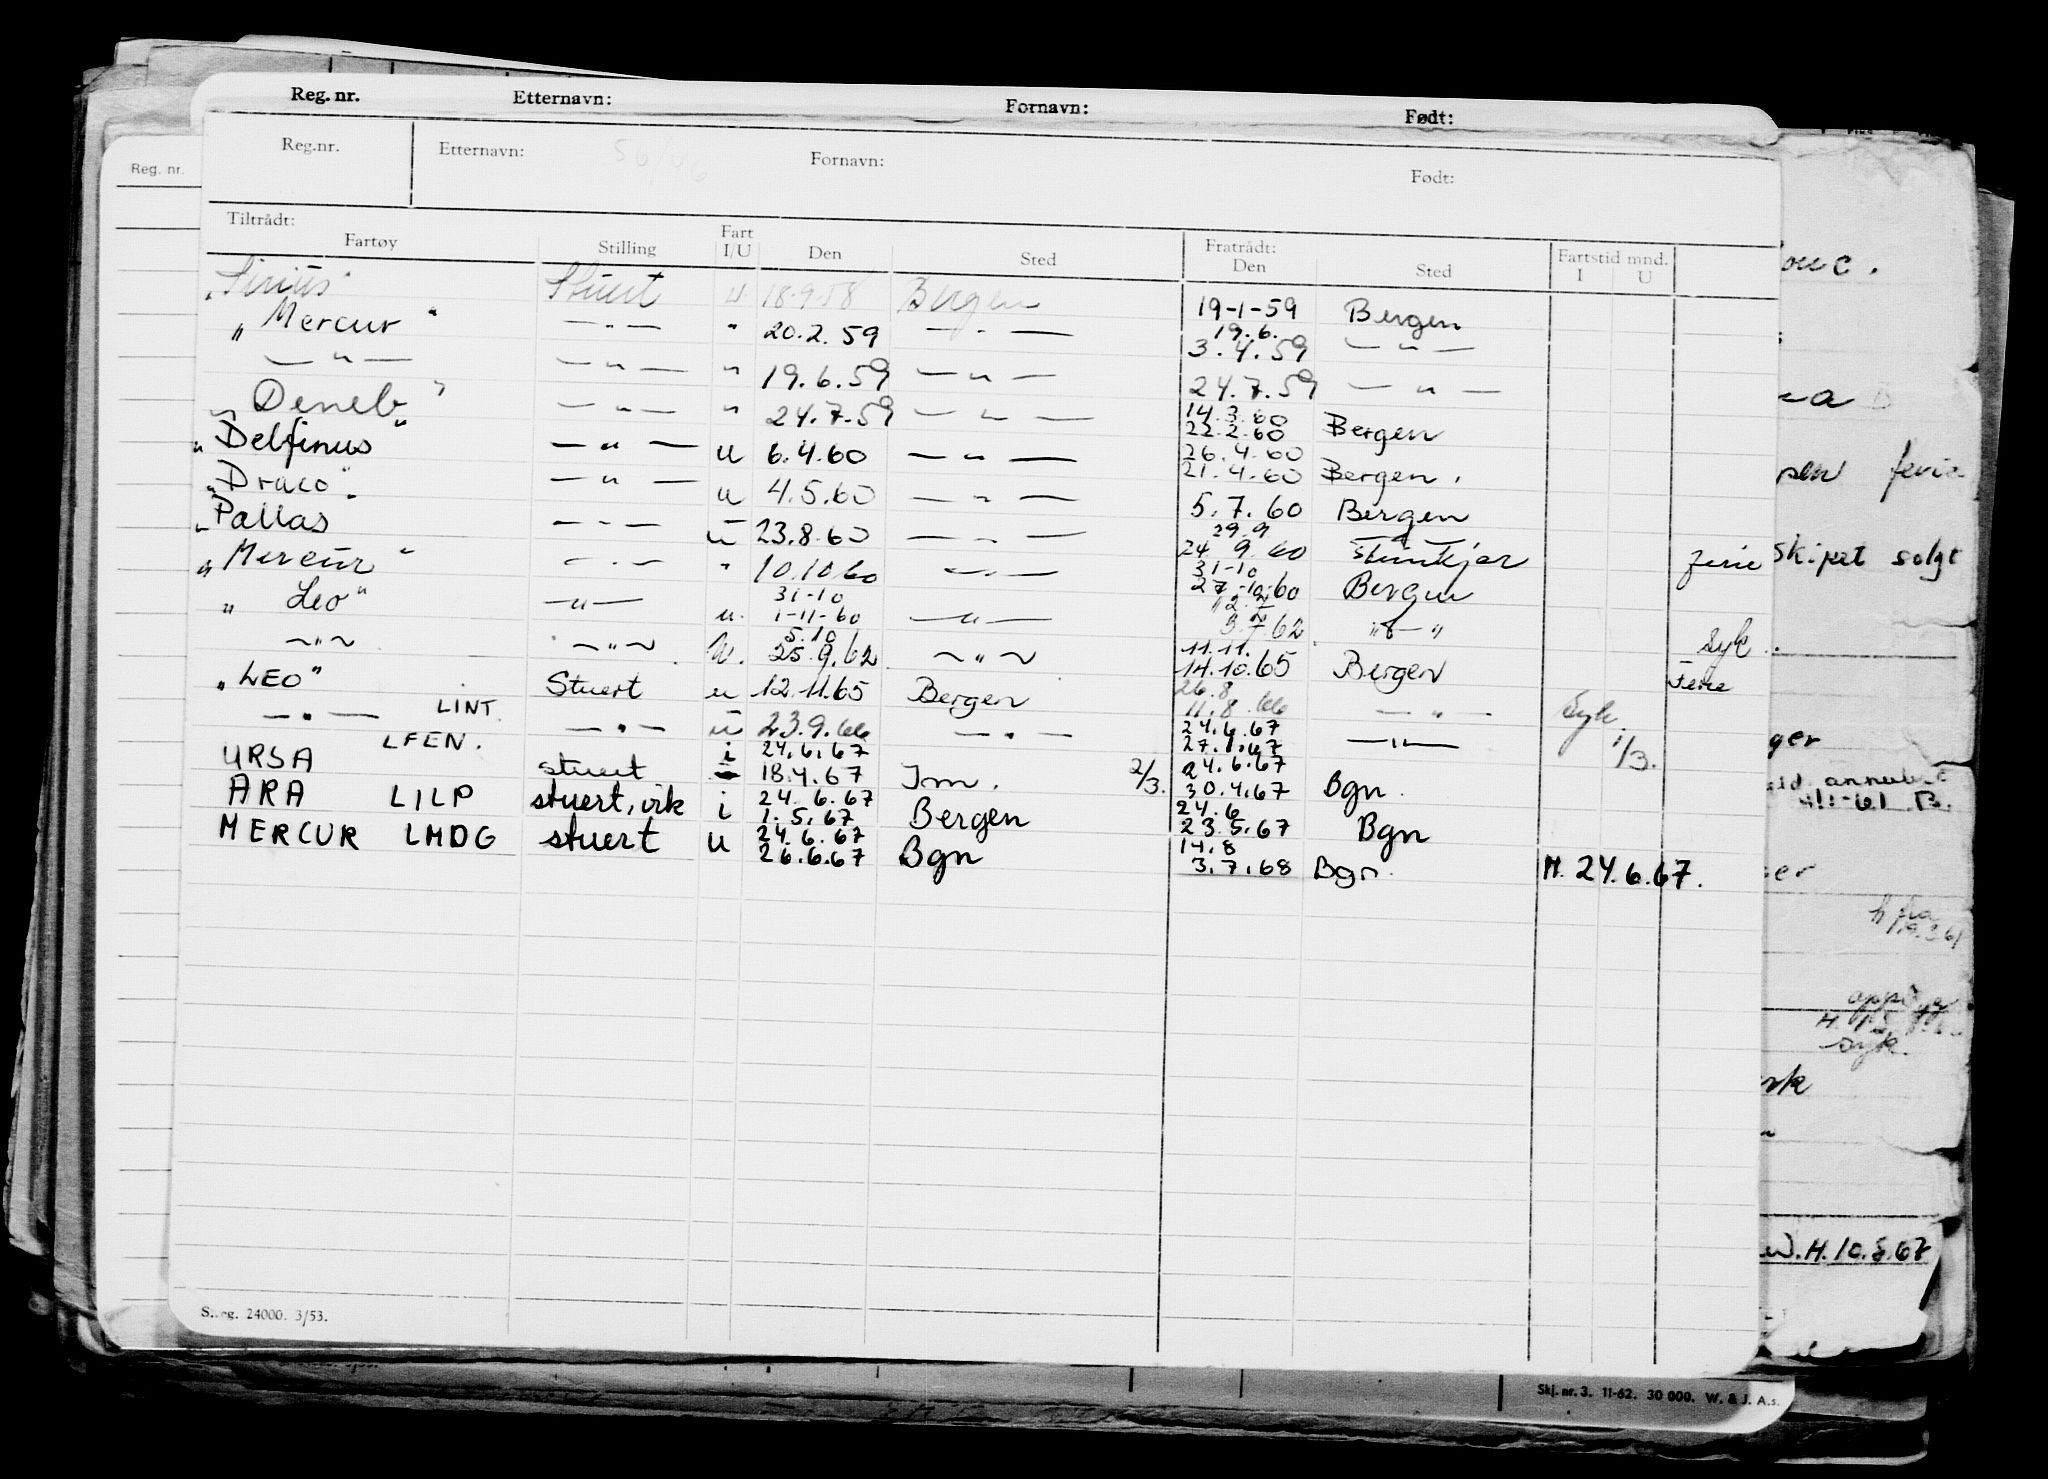 Reg. nr. Etternavn: Fornavn: Født:
Reg.nr. Etternavn: 56/46 Fornavn: Født:
Reg. nr.
Tiltrådt: Fratrådt:
Fartøy Stilling Fart I/U Den Sted Den Sted Fartstid mnd. I U
„Sirius" Stuert u 18.9.58 Bergen 19-1-59 Bergen
„Mercur" — " — " 20.2.59 — " — 19.6. 3.4.59 — " —
— " — — " — " 19.6.59 — " — 24.7.59 — " —
„Deneb" — " — " 24.7.59 — " — 14.3.60 22.2.60 Bergen
„Delfinus" — " — u 6.4.60 — " — 26.4.60 21.4.60 Bergen.
„Draco" — " — u 4.5.60 — " — 5.7.60 Bergen
„Pallas — " — u 23.8.60 — " — 29.9 24.9.60 Ferie
„Mercur" — " — " 10.10.60 — " — 31-10 27-10.60 Bergen
„Leo" — " — u. 31-10 1-11-60 — " — 62 " — "
— " — — " — u. 5.10 25.9.62 — " — 11.11. 14.10.65 Bergen Syk
„LEO" Stuert u 12.11.65 Bergen 26.8 11.8.66 — " — Ferie
— " — LINT. — " — u 23.9.66 — " — 24.6.67 27.1.67 — " — Syk. 1/3.
URSA LFEN. stuert i 24.6.67 18.4.67 Ism. 2/3. 24.6.67 30.4.67 Bgn.
ARA LILP stuert, vik i 24.6.67 1.5.67 Bergen 24.6 23.5.67 Bgn
MERCUR LMDG stuert u 24.6.67 26.6.67 Bgn 14.8 3.7.68 Bgn. H. 24.6.67.
S.reg. 24000. 3/53.
ferie
skipet solgt
annul
syk.
H. 10.8.67
Skj. nr. 3. 11-62. 30 000. W. & J. A.s.